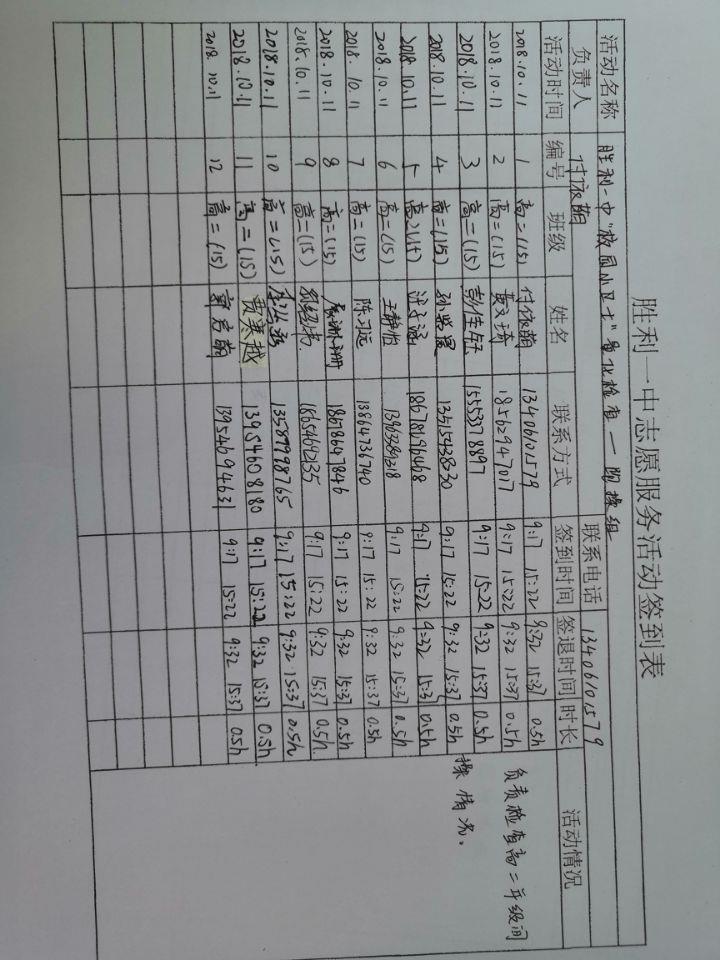 胜利一中志愿服务活动签到表
活动名称 胜利一中"校园小卫士"量化检查——间操组
负责人 付依萌 联系电话 13406101579
活动时间 编号 班级 姓名 联系方式 签到时间 签退时间 时长 活动情况
2018.10.11 1 高二(15) 付依萌 13406101579 9:17 15:22 9:32 15:37 0.5h 负责检查高二年级间
2018.10.11 2 高二(15) 18562947017 9:17 15:22 9:32 15:37 0.5h 操情况。
2018.10.11 3 高二(15) 彭佳钰 15553378897 9:17 15:22 9:32 15:37 0.5h
2018.10.11 4 高二(15) 13615438930 9:17 15:22 9:32 15:37 0.5h
2018.10.11 5 高二(15) 18678696468 9:17 15:22 9:32 15:37 0.5h
2018.10.11 6 高二(15) 王静怡 9:17 15:22 9:32 15:37 0.5h
2018.10.11 7 高二(15) 陈习远 13864736740 9:17 15:22 9:32 15:37 0.5h
2018.10.11 8 高二(15) 18678647846 9:17 15:22 9:32 15:37 0.5h
2018.10.11 9 高二(15) 18654692135 9:17 15:22 9:32 15:37 0.5h
2018.10.11 10 高二(15) 13587998765 9:17 15:22 9:32 15:37 0.5h
2018.10.11 11 高二(15) 贾寒越 13954608180 9:17 15:22 9:32 15:37 0.5h
2018.10.11 12 高二(15) 13954694631 9:17 15:22 9:32 15:37 0.5h